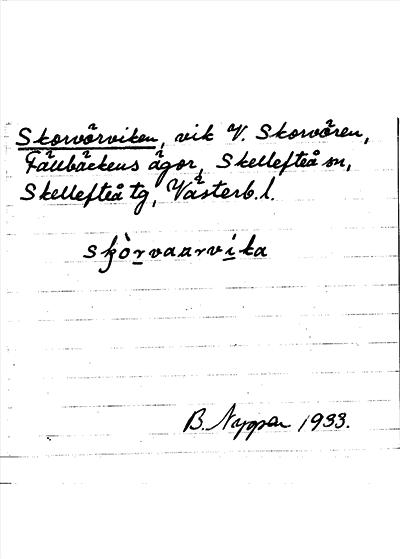 Skorvörviken, vik V. Skorvören,
Fällbäckens ägor, Skellefteå sn,
Skellefteå tg, Västerb. l.
skòrvaarvíka
B. Nyppen 1933.